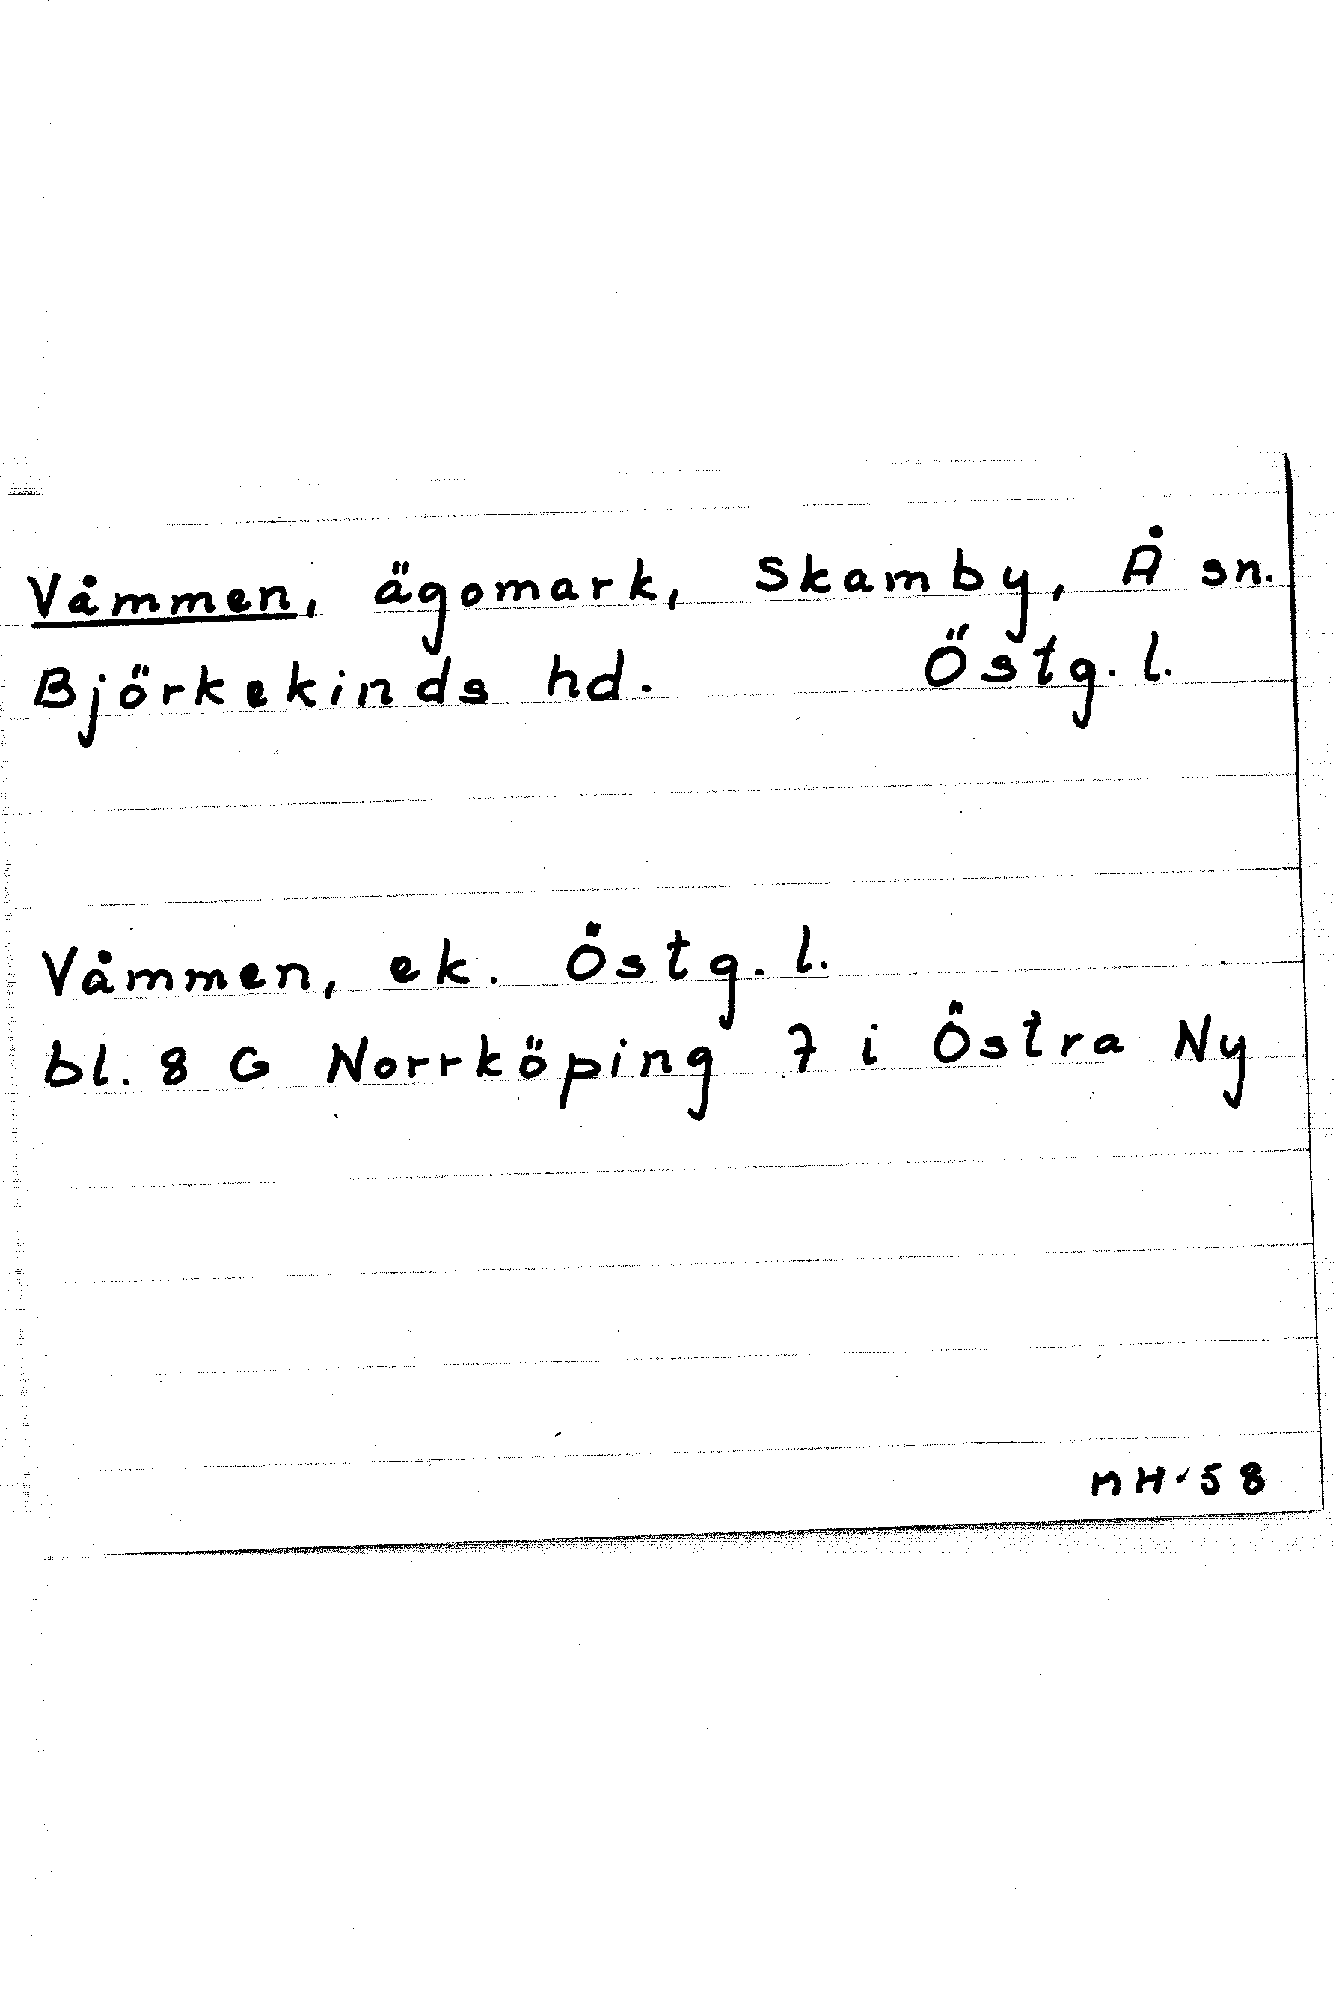 Våmmen, ägomark, Skamby, Å sn.
Björkekinds hd. Östg. l.
Våmmen, ek. Östg. l.
bl. 8 G Norrköping 7 i Östra Ny
MH-58